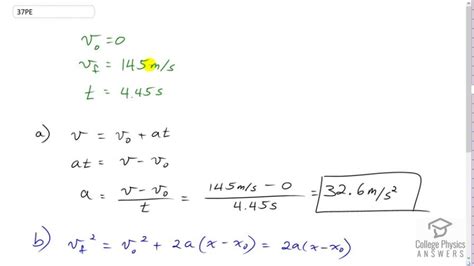 37PE
v₀ = 0
v_f = 145 m/s
t = 4.45 s
a) v = v₀ + at
at = v - v₀
a = (v - v₀)/t = (145 m/s - 0)/4.45 s = 32.6 m/s²
b) v_f² = v₀² + 2a(x - x₀) = 2a(x - x₀)
College Physics
ANSWERS